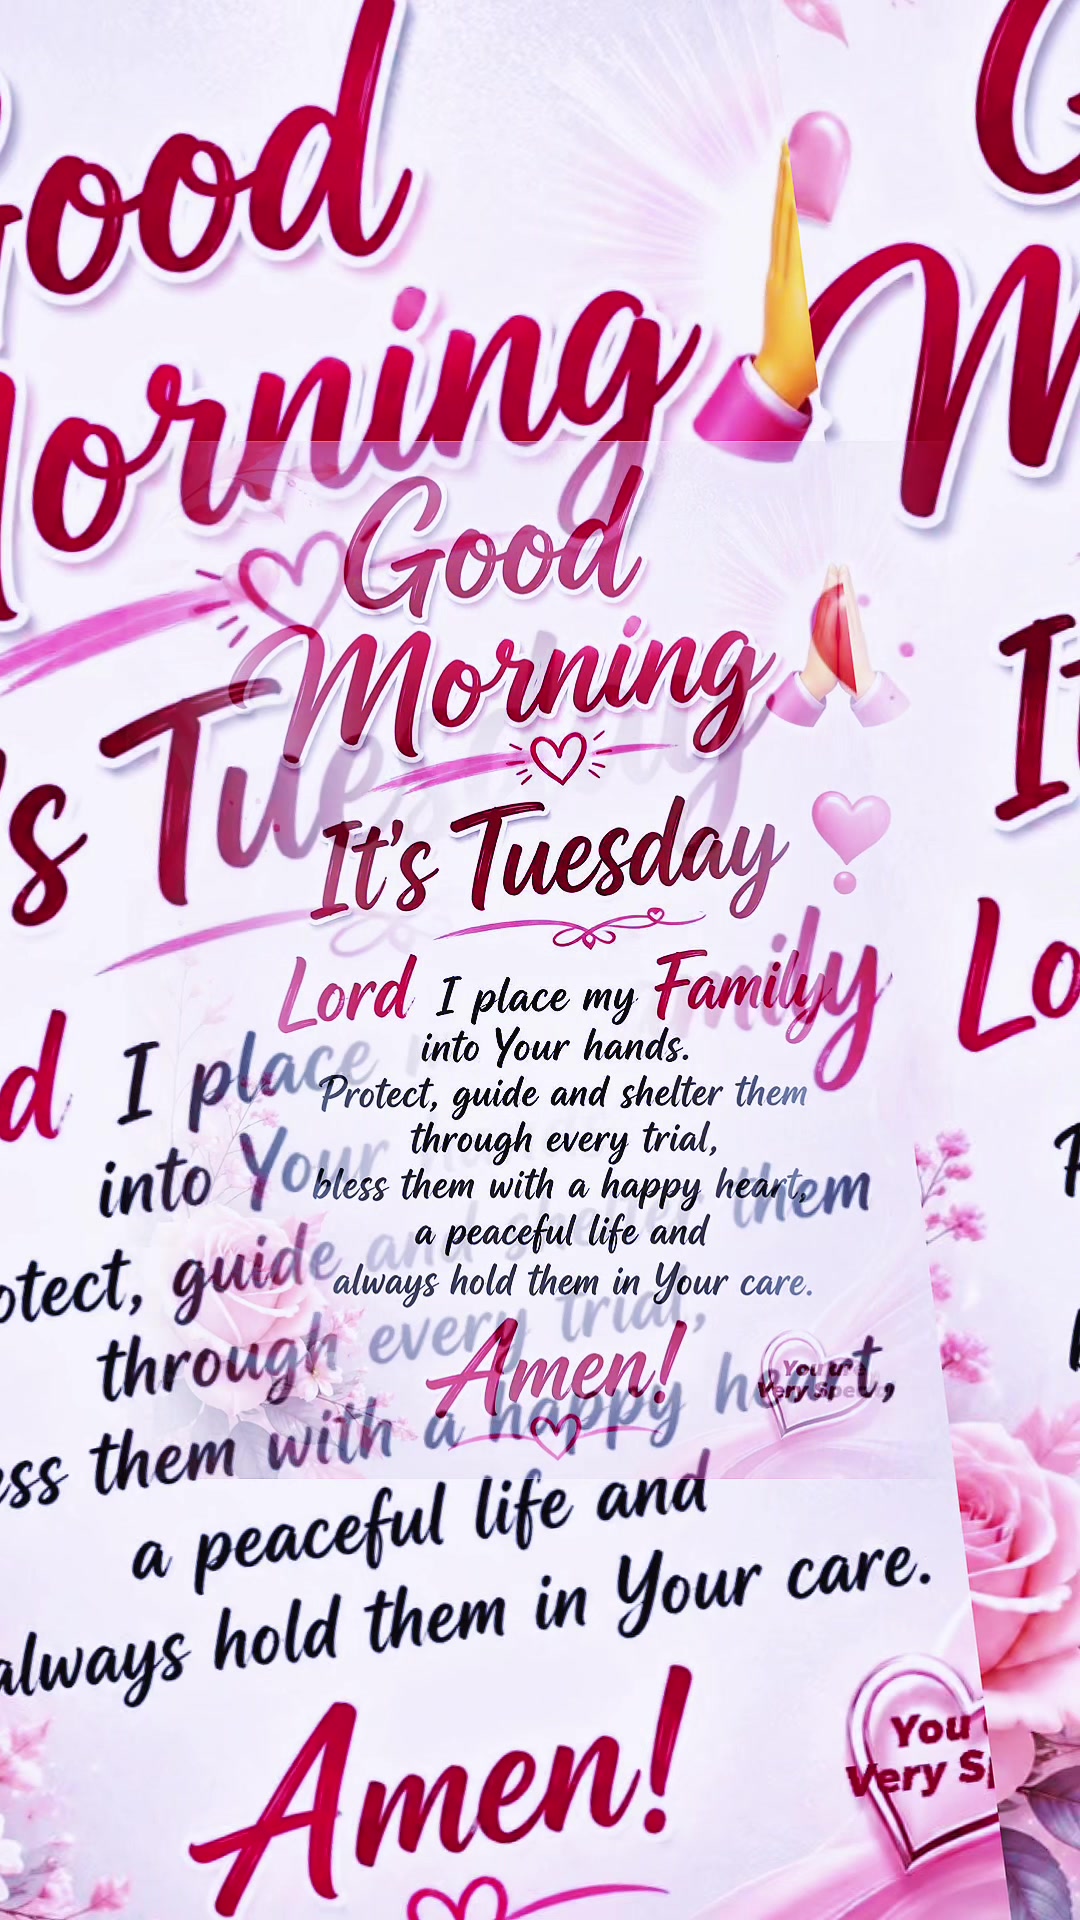 Good
Morning
It's Tuesday
Lord I place my Family
into Your hands.
Protect, guide and shelter them
through every trial,
bless them with a happy heart,
a peaceful life and
always hold them in Your care.
Amen!
You're
Very Special
ood
orning
's Tuesday
d I place
into Your
otect, guide and shelter them
through every trial,
ess them with a happy heart,
a peaceful life and
always hold them in Your care.
Amen!
You
Very Sp
G
M
It
Lo
P